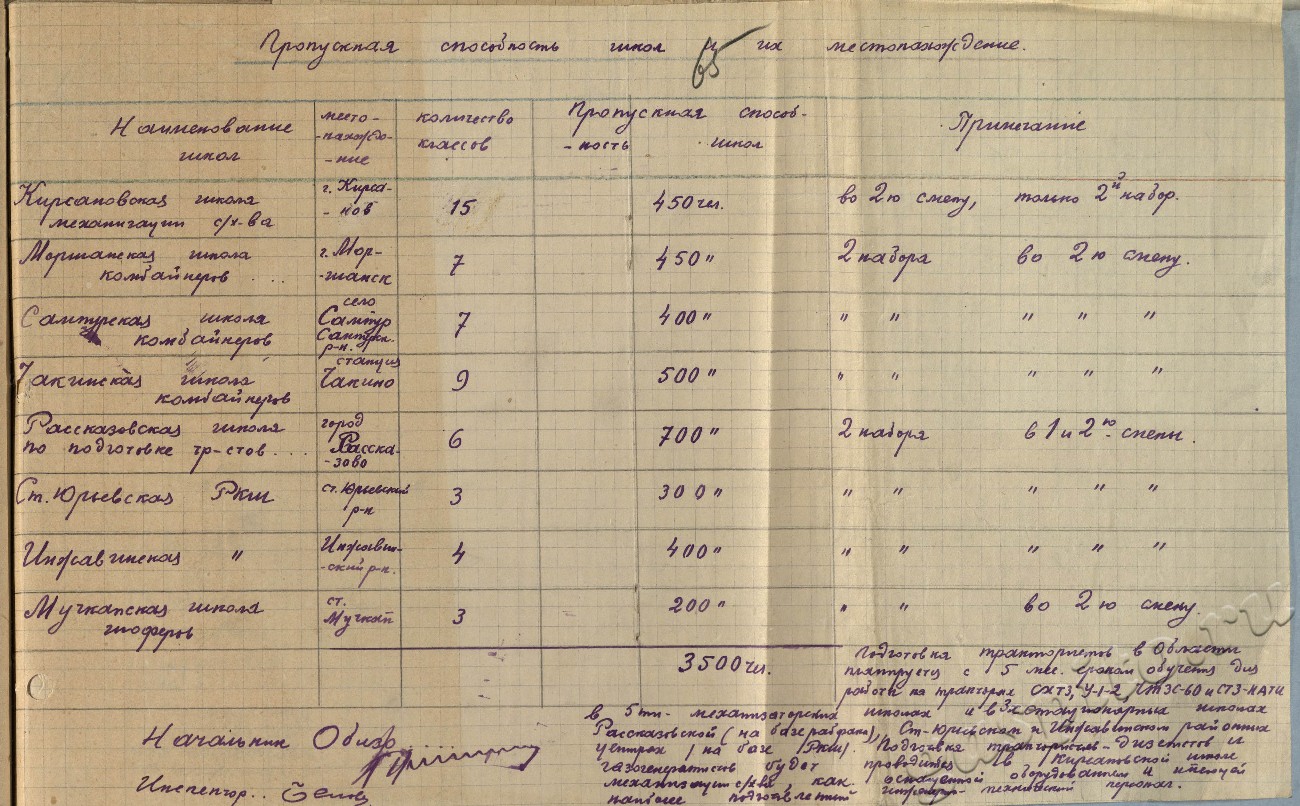 Пропускная способность школ и их местонахождение.
65
Наименование школ | место-нахожде-ние | количество классов | Пропускная способ-ность школ | Примечание
Кирсановская школа механизации с/х-ва | г. Кирса-нов | 15 | 450 чел. | во 2ю смену, только 2й набор.
Моршанская школа комбайнеров . . . | г. Мор-шанск | 7 | 450 " | 2 набора во 2ю смену.
Сампурская школа комбайнеров | село Сампур Сампурск. р-н. | 7 | 400 " | " " " " "
Чакинская школа комбайнеров | станция Чакино | 9 | 500 " | " " " " "
Рассказовская школа по подготовке тр-стов . . . | город Расска-зово | 6 | 700 " | 2 набора в 1 и 2ю смены.
Ст. Юрьевская РКШ | ст. Юрьевский р-н | 3 | 300 " | " " " " "
Инжавинская " | Инжавин-ский р-н. | 4 | 400 " | " " " " "
Мучкапская школа шоферов | ст. Мучкап | 3 | 200 " | " " во 2ю смену.
3500 чел.
Подготовка трактористов в Области
планируется с 5 мес. сроком обучения для
работы на тракторах СХТЗ, У-1-2, ЧТЗС-60 и СТЗ-НАТИ
в 5ти- механизаторских школах и в 3х стационарных школах
Рассказовской (на базе рабфака), Ст-Юрьевском и Инжавинском районных
центрах (на базе РКШ). Подготовка трактористов-дизелистов и
газогенераторщиков будет проводиться в Кирсановской школе
механизации с/х-ва, как оснащенной оборудованием и имеющей
наиболее подготовленный инженерно-технический персонал.
Начальник Облзо
Инспектор..